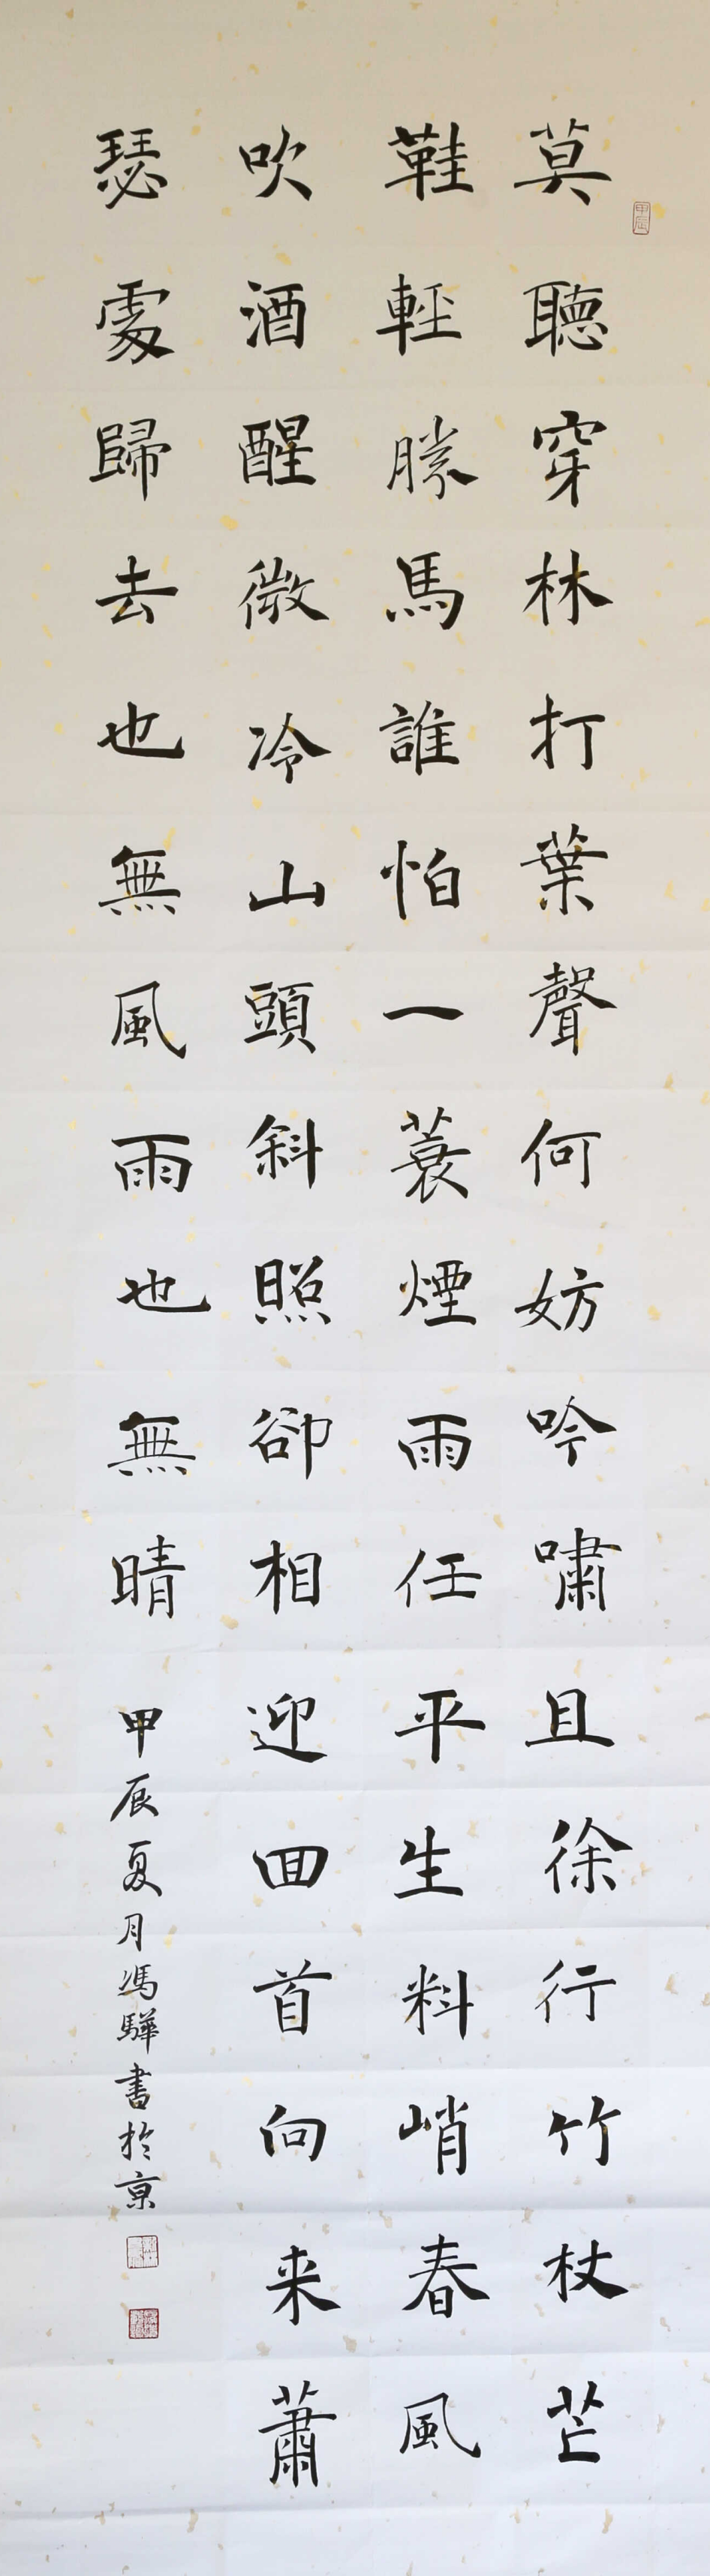 莫聽穿林打葉聲何妨吟嘯且徐行竹杖芒
鞋輕勝馬誰怕一蓑煙雨任平生料峭春風
吹酒醒微冷山頭斜照卻相迎回首向来蕭
瑟處歸去也無風雨也無晴
甲辰夏月馮驊書於京
甲辰